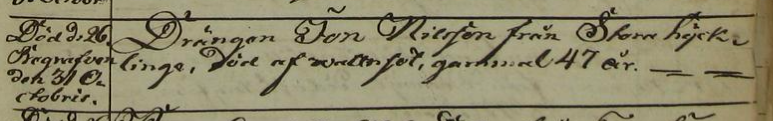 Död d. 26.
Begrafven
den 31 O-
ctobris.
Drängen Jon Nilsson från Stora höck-
linge, död af wattusot, gammal 47 år. — —